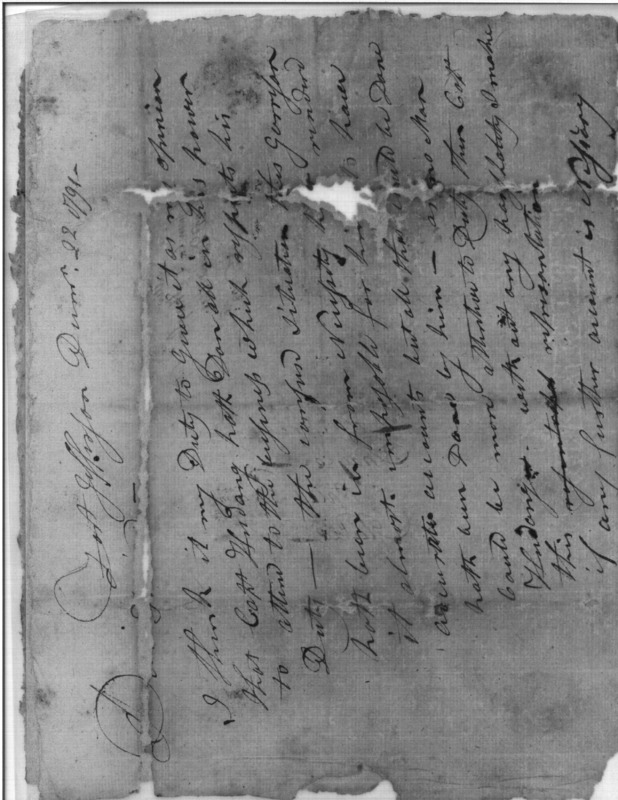 Fort Jefferson Decmr. 22 1791 -
D Sir -
I think it my Duty to give it as my opinion
that Capt Hindang hath Don all in his power
to attend to the buisness which respects his
Duty — the confused Situation this Garrison
hath been in from Nesesity has rendered
it almost impossible for him to have
accurate accounts but all that could be Done
hath been Done by him — and no Man
could be more attentive to Duty than Capt
Hindang. with out any hesitation I make
this representation
if any further account is Nessary